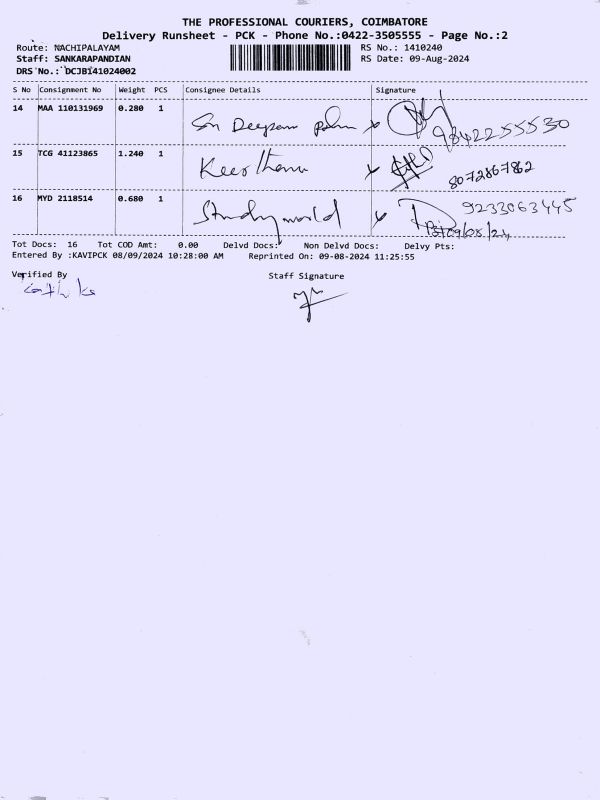 THE PROFESSIONAL COURIERS, COIMBATORE
Delivery Runsheet - PCK - Phone No.:0422-3505555 - Page No.:2
Route: NACHIPALAYAM RS No.: 1410240
Staff: SANKARAPANDIAN RS Date: 09-Aug-2024
DRS No.: DCJBI41024002
S No Consignment No Weight PCS Consignee Details Signature
14 MAA 110131969 0.280 1 Sri Deepam 9842255530
15 TCG 41123865 1.240 1 Keerthana 8072867862
16 MYD 2118514 0.680 1 Study world 9233063445
09/08/24
Tot Docs: 16 Tot COD Amt: 0.00 Delvd Docs: Non Delvd Docs: Delvy Pts:
Entered By :KAVIPCK 08/09/2024 10:28:00 AM Reprinted On: 09-08-2024 11:25:55
Verified By Staff Signature